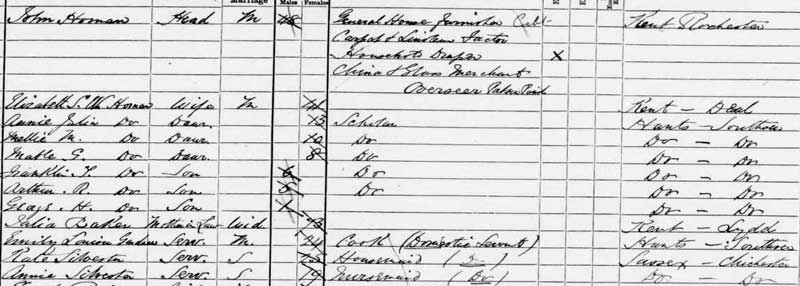 Marriage Males Females
John Homan Head M 48 General House Furnisher Kent Rochester
Carpet & Linoleum Factor
Household Draper X
China & Glass Merchant
Overseer
Elizabeth S. W. Homan Wife M 41 Kent - Deal
Annie Julia Do Daur. 13 Scholar Hants - Southsea
Nellie M. Do Daur. 10 Do Do - Do
Mable G. Do Daur. 8 Do Do - Do
Franklin T. Do Son 6 Do Do - Do
Arthur R. Do Son 5 Do Do - Do
George H. Do Son 1 Do - Do
Julia Baker Mother in Law Wid. 73 Kent - Lydd
Emily Louisa Serv. M. 24 Cook (Domestic Servt) Hants - Southsea
Kate Silvester Serv. S 25 Housemaid ( Do ) Sussex - Chichester
Annie Silvester Serv. S 19 Nursemaid ( Do ) Do - Do